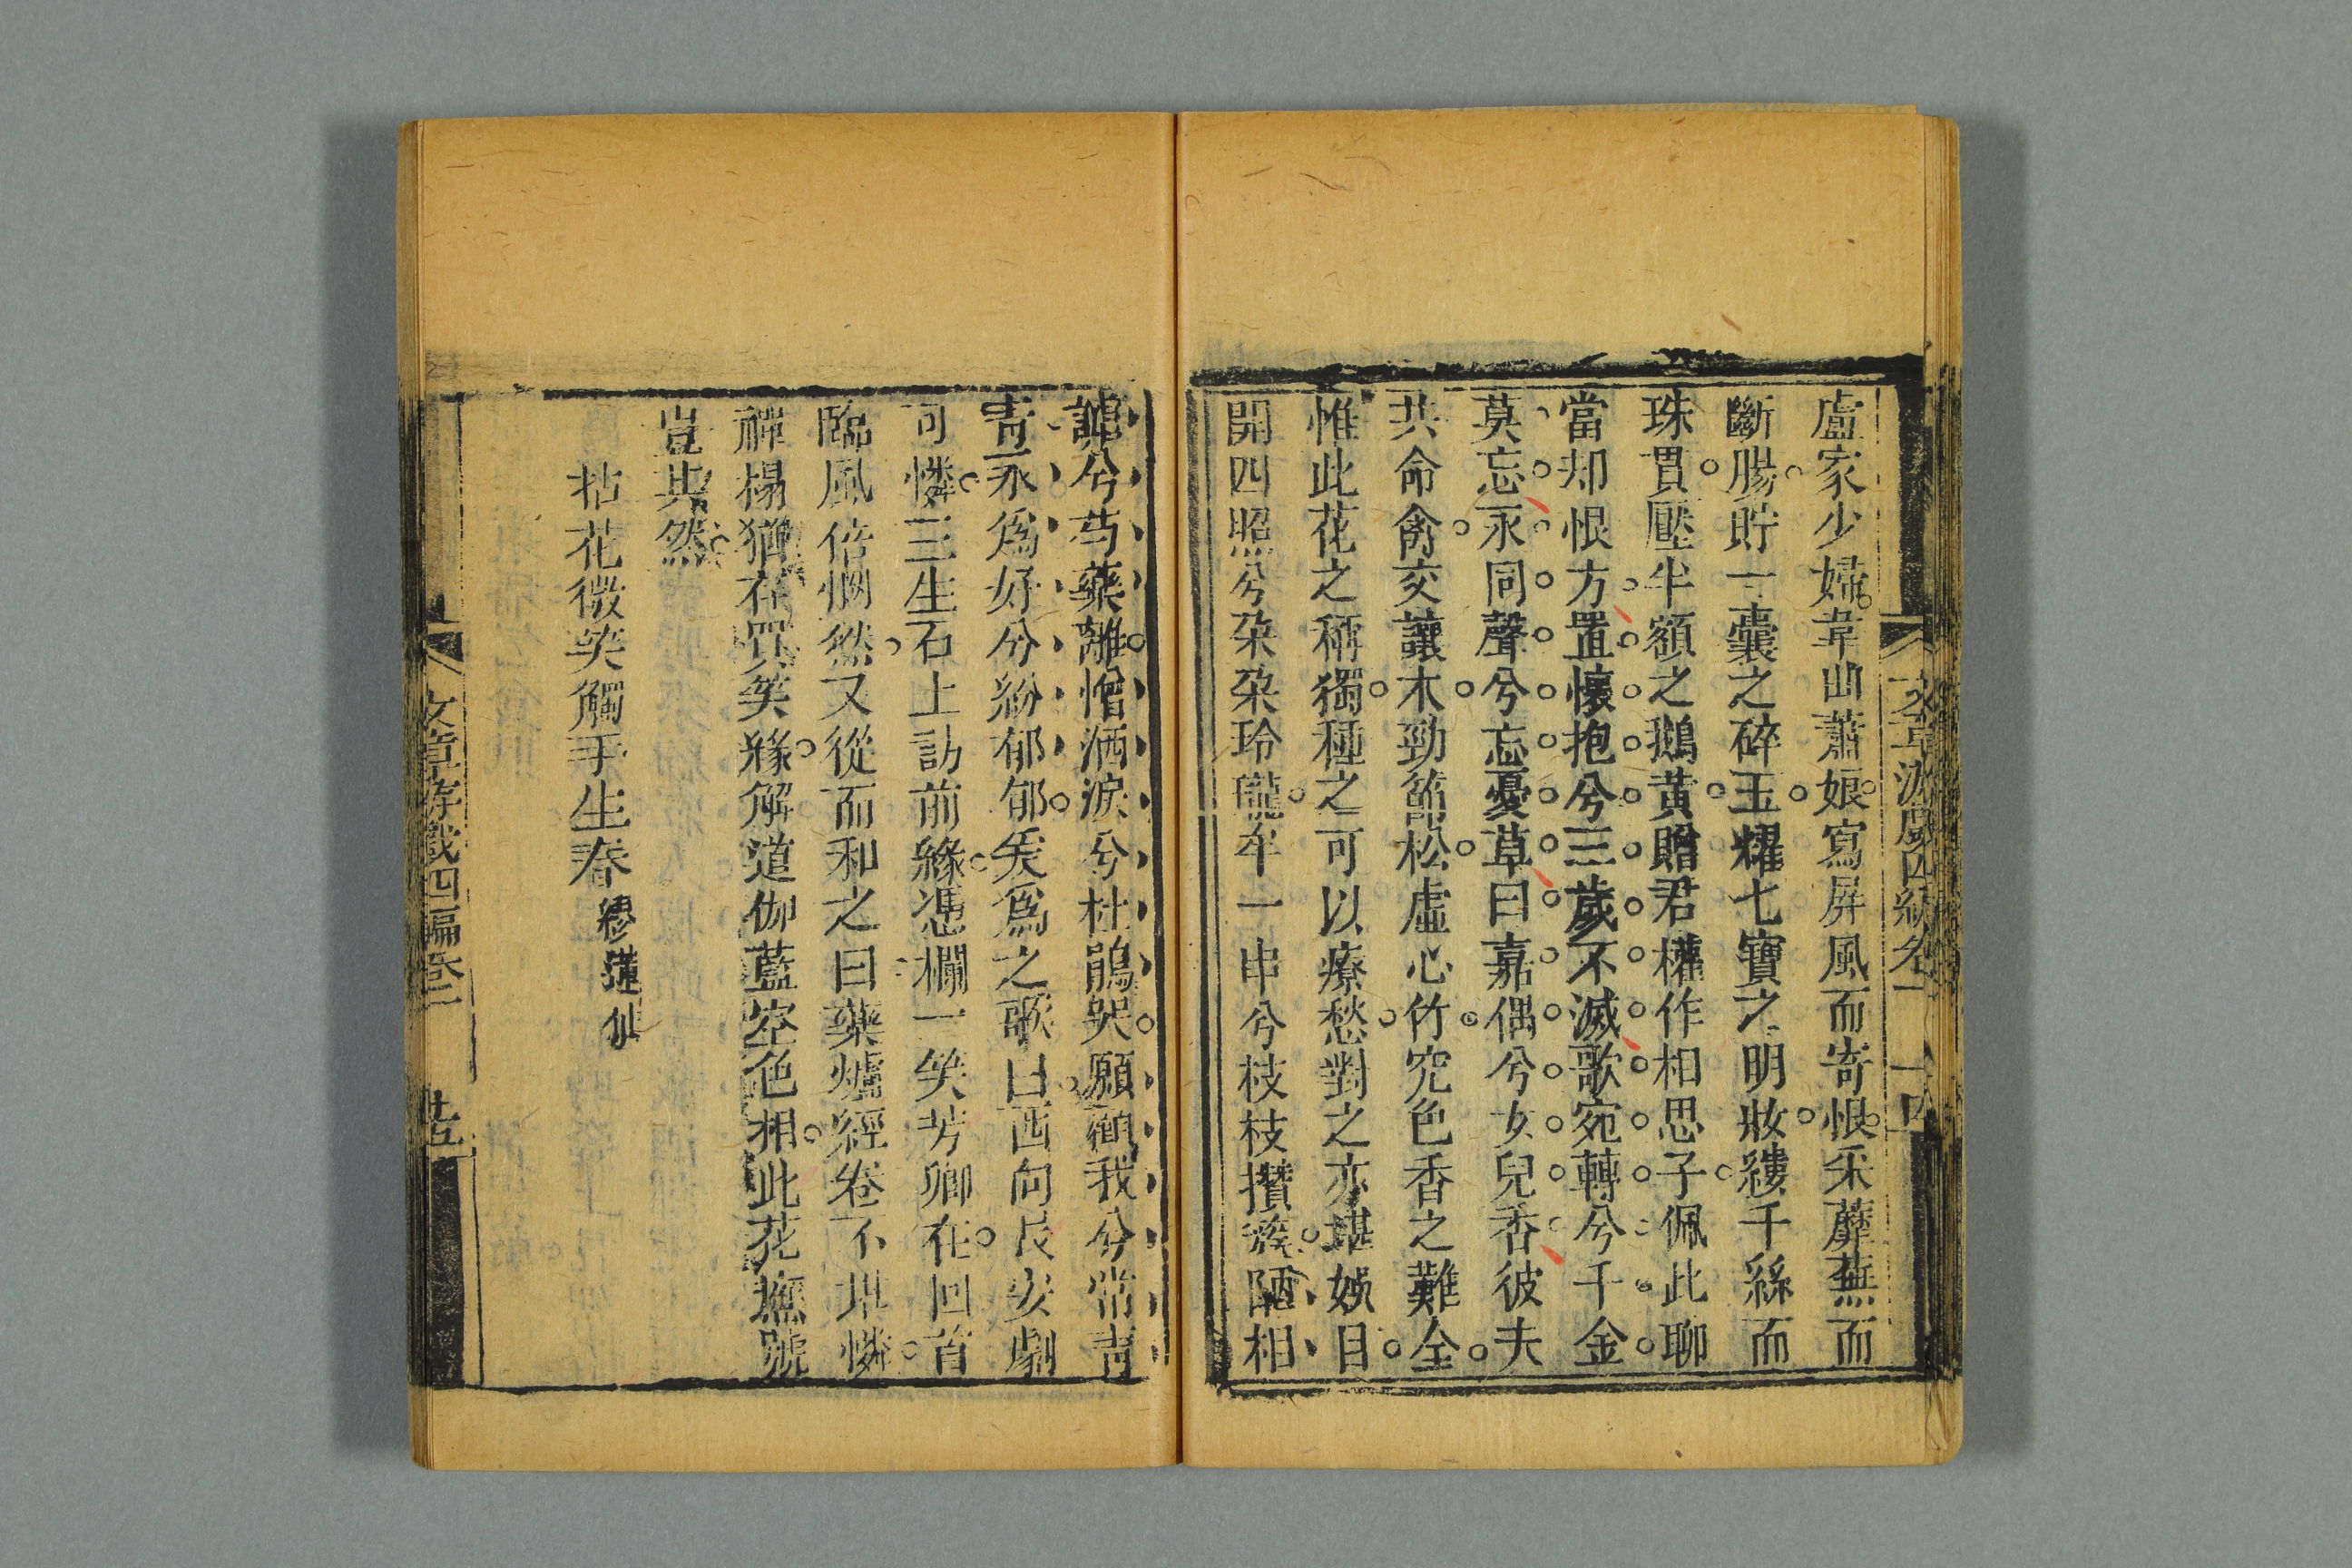 文章游戲四編卷二 二十四
盧家少婦韋曲蕭娘寫屏風而寄恨采蘼蕪而
斷腸貯一囊之碎玉耀七寶之明妝縷千絲而
珠貫壓半額之鵝黃贈君權作相思子佩此聊
當却恨方置懷抱兮三歲不滅歌宛轉兮千金
莫忘永同聲兮忘憂草曰嘉偶兮女兒香彼夫
共命禽交讓木勁節松虛心竹究色香之難全
惟此花之稱獨種之可以療愁對之亦堪娛目
開四照兮朶朶玲瓏牟一串兮枝枝攢簇陋相
謔兮芍藥離憎洒淚兮杜鵑哭願顧我兮常青
青永爲好兮紛郁郁矣爲之歌曰西向長安劇
可憐三生石上訪前緣憑欄一笑芳卿在回首
臨風倍惘然又從而和之曰藥爐經卷不堪憐
禪榻猶存買笑緣解道伽藍空色相此花撫號
豈其然
拈花微笑觸手生春繆蓮仙
文章游戲四編卷二 廿五